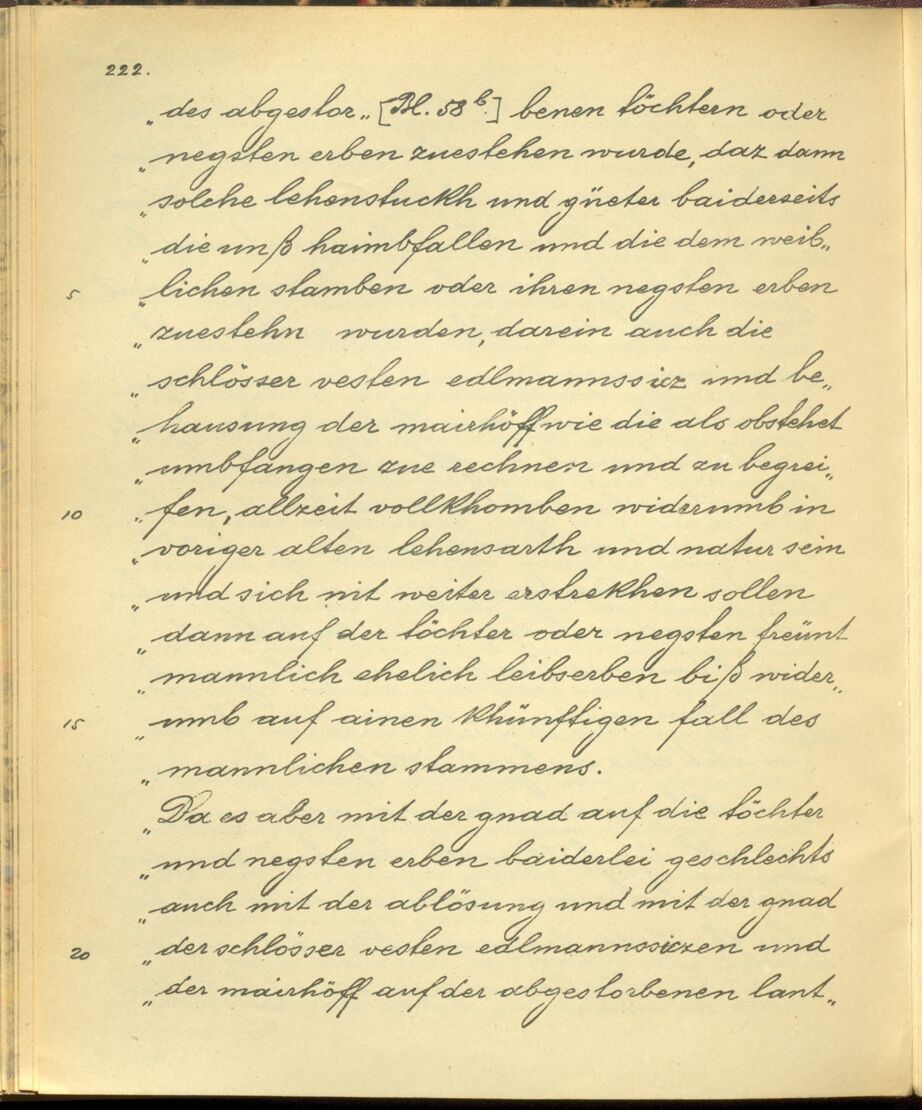 222.
„des abgestor„ [Bl. 58ᵇ.] benen töchtern oder
„negsten erben zuestehen wurde, daz dann
„solche lehenstuckh und güeter baiderseits
„die unß haimbfallen und die dem weib„
5 „lichen stamben oder ihren negsten erben
„zuestehn wurden, darein auch die
„schlösser vesten edlmannssicz und be„
„hausung der mairhöff wie die als obstehet
„umbfangen zue rechnen und zu begrei„
10 „fen, allzeit vollkhomben widerumb in
„voriger alten lehensarth und natur sein
„und sich nit weiter erstrekhen sollen
„dann auf der töchter oder negsten freünt
„mannlich ehelich leibserben biß wider„
15 „umb auf ainen khünftigen fall des
„mannlichen stammens.
„Da es aber mit der gnad auf die töchter
„und negsten erben baiderlei geschlechts
„auch mit der ablösung und mit der gnad
20 „der schlösser vesten edlmannssiczen und
„der mairhöff auf der abgestorbenen lant„